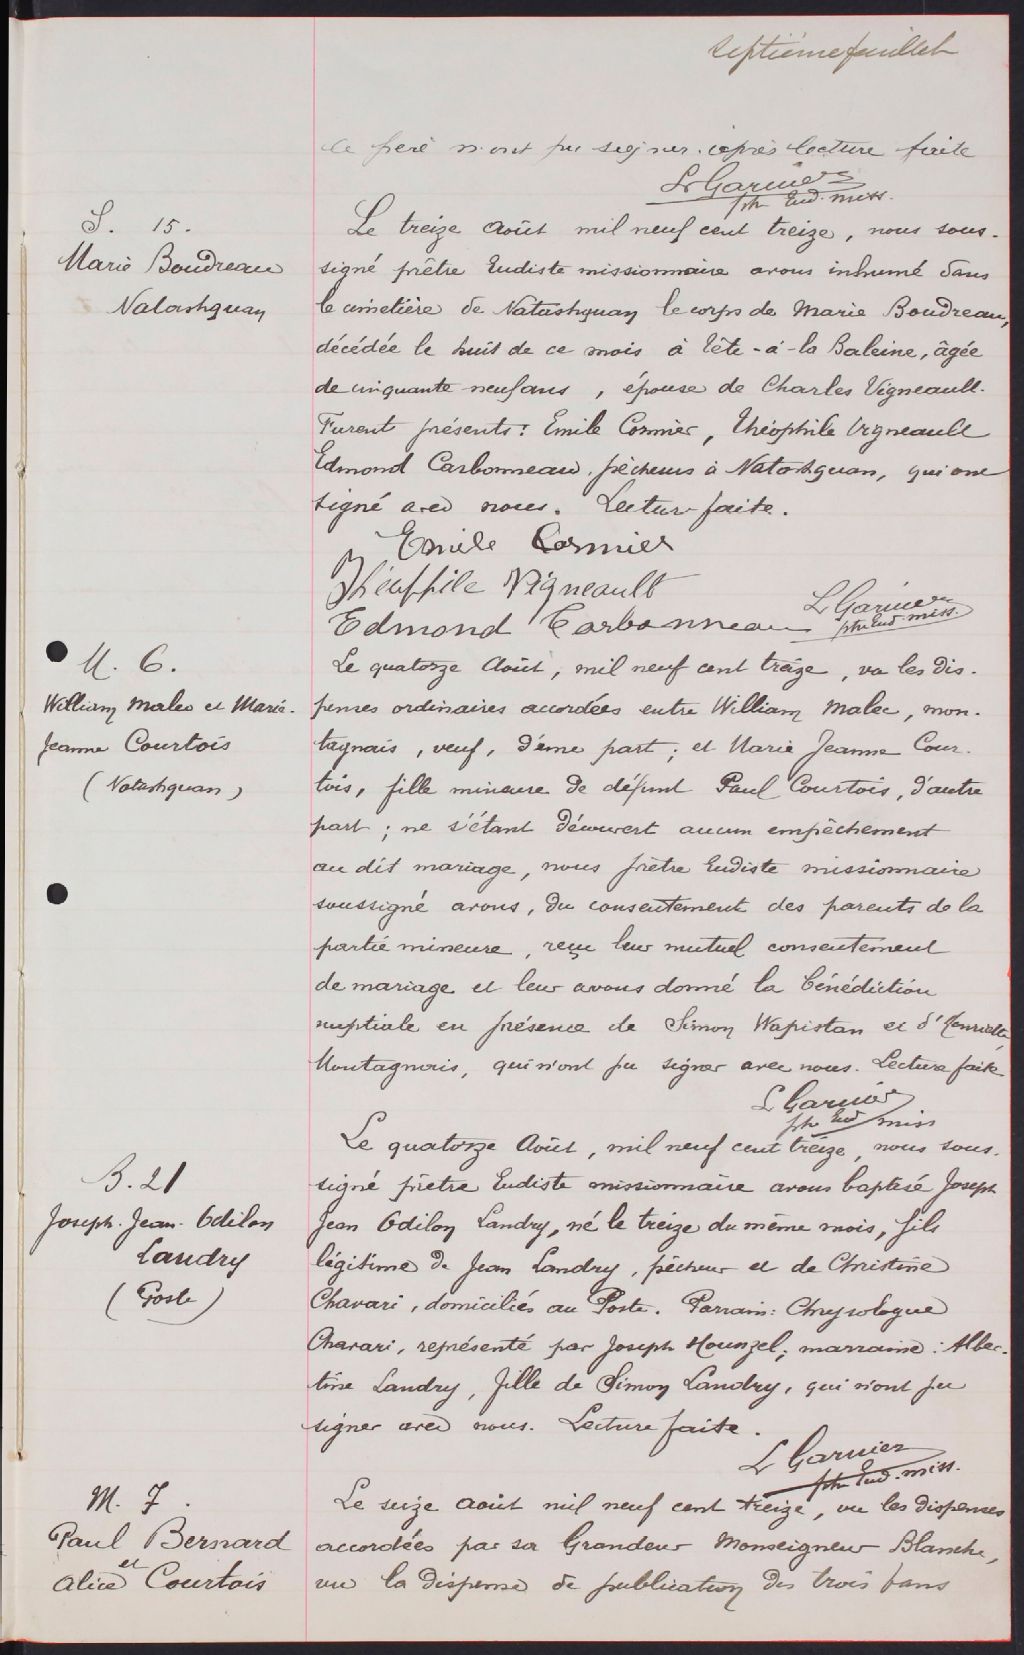 septième feuillet
le père n'ont pu signer. après lecture faite
L Garnier
ptr Eud. miss.
S. 15.
Marie Boudreau
Natashquan
Le treize Août mil neuf cent treize, nous sous-
signé prêtre Eudiste missionnaire avons inhumé dans
le cimetière de Natashquan le corps de Marie Boudreau,
décédée le huit de ce mois à Tête-à-la Baleine, âgée
de cinquante neuf ans, épouse de Charles Vigneault.
Furent présents: Emile Cormier, Théophile Vigneault
Edmond Carbonneau, pêcheurs à Natashquan, qui ont
signé avec nous. Lecture faite.
Emile Cormier
Théuffile Vigneault
Edmond Carbonneau
L Garnier
ptr Eud. miss.
M. 6.
William Malec et Marie-
Jeanne Courtois
(Natashquan)
Le quatorze Août, mil neuf cent treize, vu les dis-
penses ordinaires accordées entre William Malec, mon-
tagnais, veuf, d'une part; et Marie Jeanne Cour-
tois, fille mineure de défunt Paul Courtois, d'autre
part; ne s'étant découvert aucun empêchement
au dit mariage, nous prêtre Eudiste missionnaire
soussigné avons, du consentement des parents de la
partie mineure, reçu leur mutuel consentement
de mariage et leur avons donné la bénédiction
nuptiale en présence de Simon Wapistan et d'Henriette,
Montagnais, qui n'ont pu signer avec nous. Lecture faite
L Garnier
ptr Eud miss
B. 21
Joseph-Jean-Odilon
Landry
(Poste)
Le quatorze Août, mil neuf cent treize, nous sous-
signé prêtre Eudiste missionnaire avons baptisé Joseph
Jean Odilon Landry, né le treize du même mois, fils
légitime de Jean Landry, pêcheur et de Christine
Chavari, domiciliés au Poste. Parrain: Chrysologue
Chavari, représenté par Joseph Hounzel; marraine: Alber-
tine Landry, fille de Simon Landry, qui n'ont pu
signer avec nous. Lecture faite.
L Garnier
ptr Eud. miss.
M. 7.
Paul Bernard
et
Alice Courtois
Le seize Août mil neuf cent treize, vu les dispenses
accordées par sa Grandeur Monseigneur Blanche,
vu la dispense de publication des trois bans